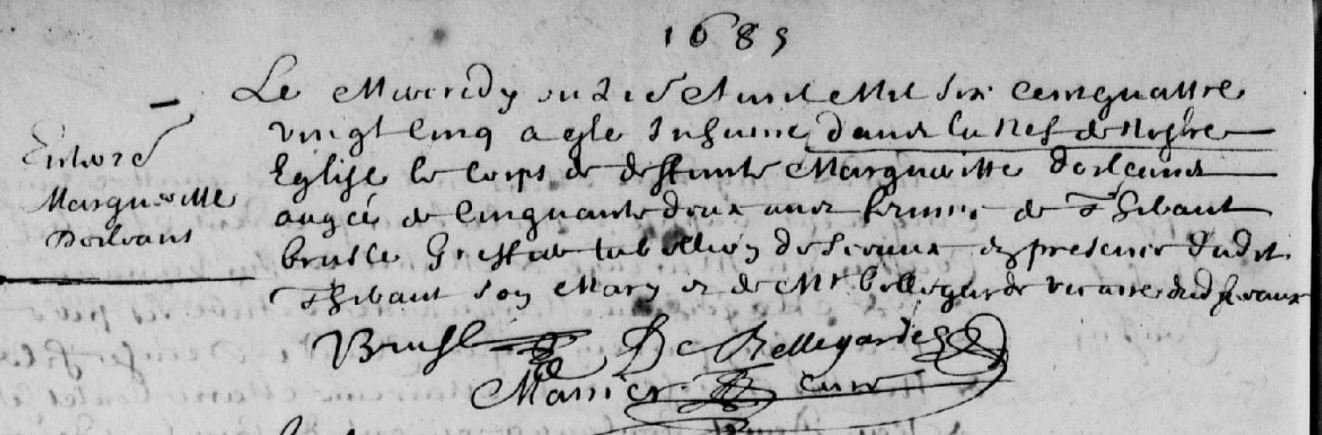 1685
Le Mercredy onze Avril Mil Six Cens quattre
vingt Cinq a esté Inhumé dans la Nef de Nostre
Eglise le Corps de deffunte Margueritte
Margueritte
aagée de Cinquante deux ans femme de Thibaut
bruslé Greffier tabellion de en presence dudit
Thibaut son Mary et de Mr bellegarde vicaire dud
Bruslé De Bellegarde
Manier curé